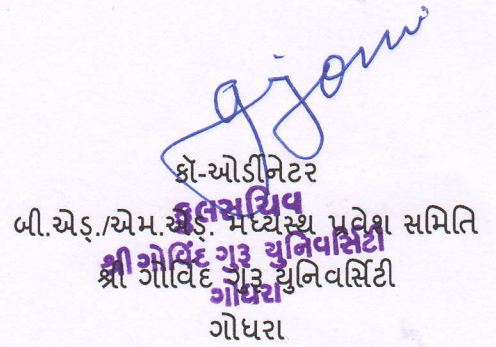 કૉ-ઓર્ડીનેટર
કુલસચિવ
બી.એડ્./એમ.એડ્. મધ્યસ્થ પ્રવેશ સમિતિ
શ્રી ગોવિંદ ગુરુ યુનિવર્સિટી
શ્રી ગોવિંદ ગુરૂ યુનિવર્સિટી
ગોધરા
ગોધરા